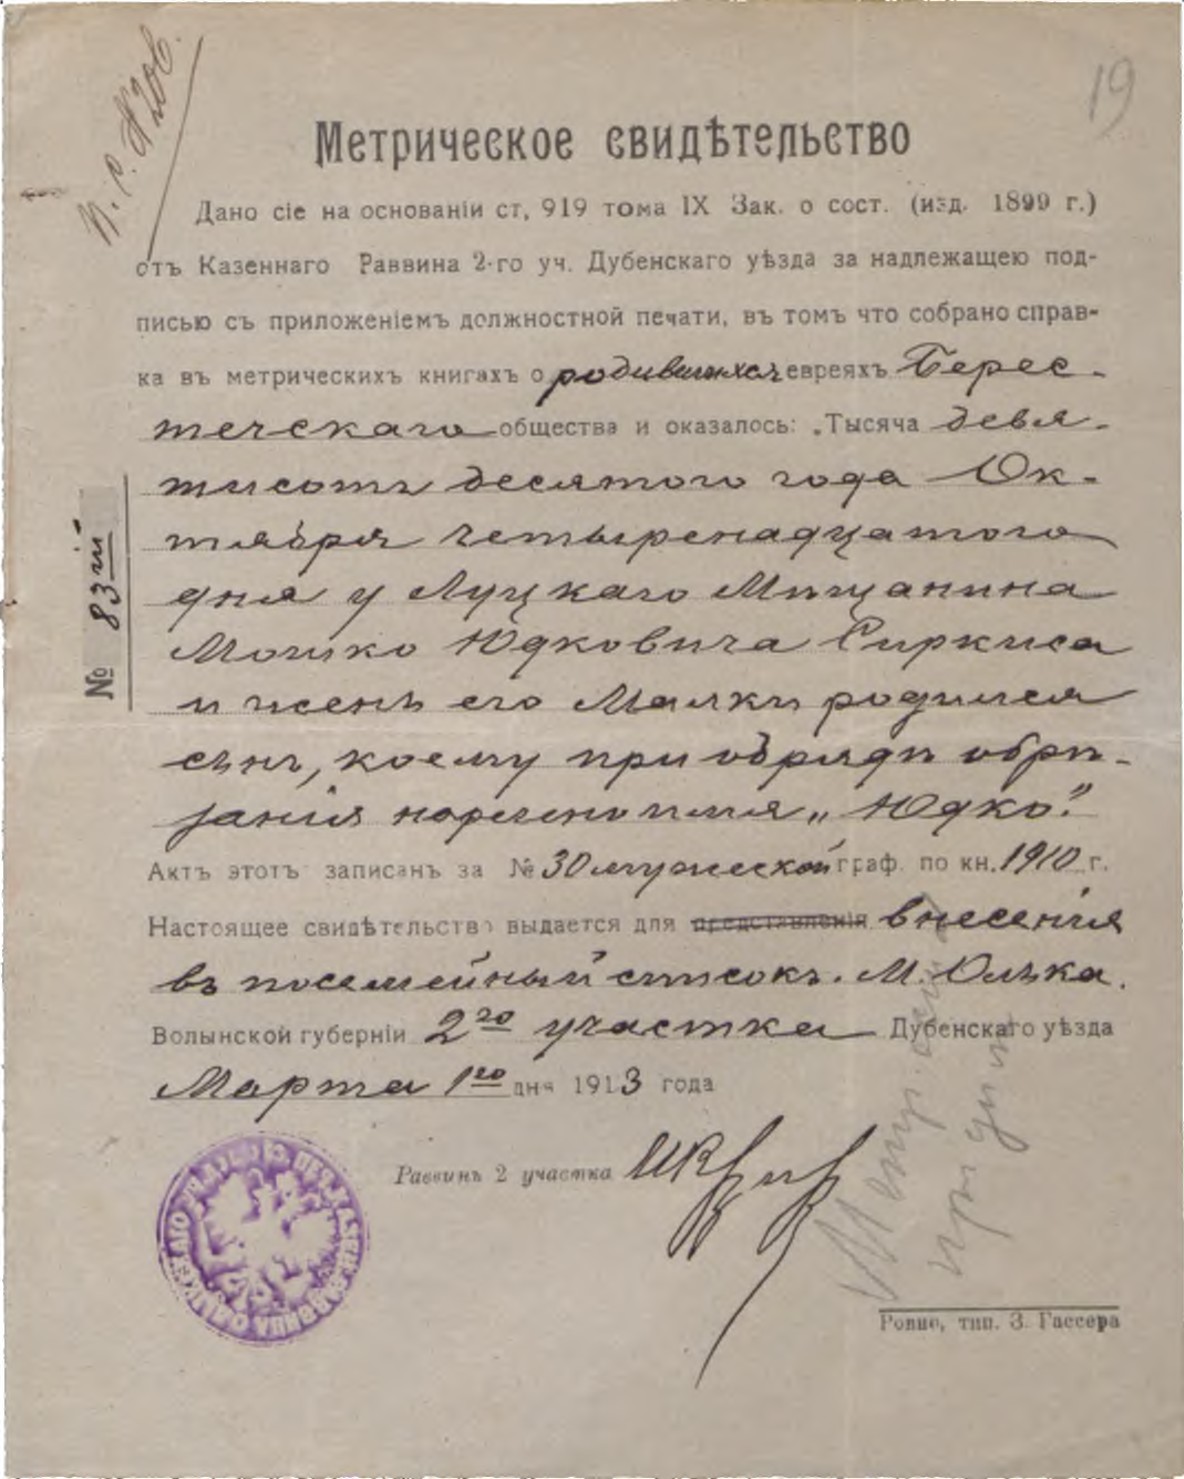 П. С. №206.
19
Метрическое свидѣтельство
Дано сіе на основаніи ст, 919 тома IX Зак. о сост. (изд. 1899 г.)
отъ Казеннаго Раввина 2-го уч. Дубенскаго уѣзда за надлежащею под-
писью съ приложеніемъ должностной печати, въ томъ что собрано справ-
ка въ метрическихъ книгахъ о родившихся евреяхъ Берес-
течскаго общества и оказалось: „Тысяча девя-
тисотъ десятого года Ок-
тября четыренадцатого
дня у Луцкаго Мѣщанина
Мошко Юдковича Сиркиса
и жены его Малки родился
сынъ, коему при обрядѣ обрѣ-
занія наречено имя „Юдко."
Актъ этотъ записанъ за № 30 мужеской граф. по кн. 1910 г.
Настоящее свидѣтельство выдается для представленія внесенія
въ посемейный списокъ. М. Олыка.
Волынской губерніи 2го участка Дубенскаго уѣзда
Марта 1го дня 1913 года
№ 83й
Раввинъ 2 участка
Ровно, тип. З. Гассера